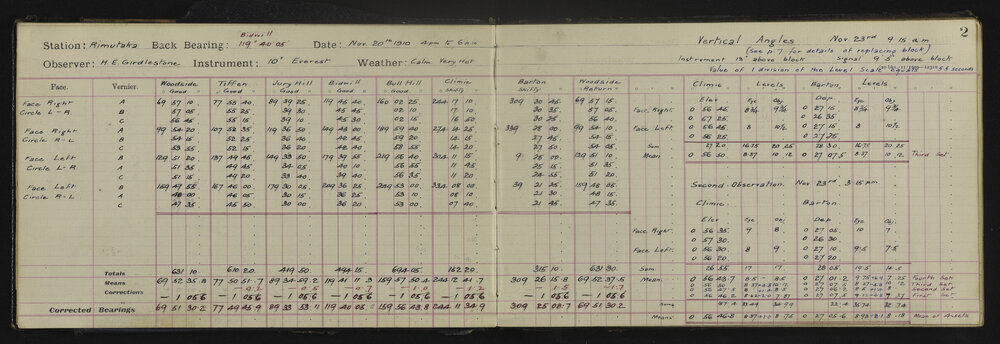 Bidwill
Station: Rimutaka Back Bearing: 119° 40 05 Date: Nov. 20th 1910 4pm to 6pm
Observer: H.E. Girdlestone Instrument: 10" Everest Weather: Calm Very Hot
Face. Vernier. Woodside Tiffen Jury Hill Bidwill Bull Hill Climie Barton Woodside
Good Good Good Good Good Shifty Shifty Return
Face Right A 69 57 10 77 55 40 89 39 25 119 45 40 160 02 25 244 17 10 309 30 45 69 57 15
Circle L-R B 57 05 55 25 39 30 45 45 02 10 16 55 30 35 57 05
C 56 45 55 15 39 10 45 30 02 15 16 50 30 25 56 40
Face Right A 99 54 20 107 52 35 119 36 50 149 43 00 189 59 40 274 14 25 339 28 00 99 54 10
Circle R-L B 54 15 52 25 42 45 59 20 14 15 27 45
C 53 55 52 15 36 20 42 40 14 20 27 50 54 05
Face Left B 129 51 20 137 49 45 149 33 50 179 39 55 219 56 40 304 11 15 9 25 00 129 51 10
Circle L-R A 51 35
C 51 15 49 20 33 40 39 40 56 35 11 20 24 55 51 20
Face Left B 159 47 55 167 46 00 179 30 05 209 36 25 249 53 00 334 08 00 39 21 25 159 48 05
Circle R-L A 48 00 46 05 30 15 36 25 53 10 08 10 21 30 48 15
C 47 35 45 50 30 00 36 20 53 00 07 40 21 45 47 35
Totals 631 10 610 20 419 50 494 15 694 05 162 20 315 10 631 30
Means 69 52 35.8 77 50 51.7 89 34 59.2 119 41 11.3 159 57 50.4 244 12 41.7 309 26 15.8 69 52 37.5
Corrections
— 1 05.6 — 1 05.6 — 1 05.6 — 1 05.6 — 1 05.6 — 1 05.6 — 1 05.6 — 1 05.6
Corrected Bearings 69 51 30.2 77 49 45.9 89 33 53.4 119 40 05 159 56 43.8 244 11 34.9 309 25 08.7 69 51 30.2
2
Vertical Angles Nov 23rd 9 15 a.m
(see p 7 for details of replacing block)
Instrument 13" above block Signal 9 5" above block
Value of 1 division of the Level Scale equals 5.5 seconds
Climie Levels Barton Levels
Elev Eye Obj Dep Eye Obj
Face Right 0 56 45 8¾ 9¾ 0 27 15 8¾ 9¾
0 57 25 0 26 35
Face Left 0 56 45 8 10½ 0 27 15 8 10½
0 56 25 0 27 25
Sum 27 20 16.75 20.25 28 30 16.75 20.25
Mean 0 56 50 8.37 10.12 0 27 07.5 8.37 10.12 Third Set
Second Observation Nov 23rd 3.15 pm
Climie Barton
Elev Eye Obj Dep Eye Obj
Face Right 0 56 35 9 8 0 27 05 10 7
0 57 30 0 26 30
Face Left 0 56 30 8 9 0 27 10 9.5 7.5
0 56 20 0 27 20
Sum 26 55 17 17 28 05 19.5 14.5
Mean 0 56 43.7 8.5 - 8.5 0 27 01.2 9.75 7.25 Fourth Set
Third Set
Second Set
First Set
Means 0 56 46.8 0 27 05.6 Mean of 4 sets